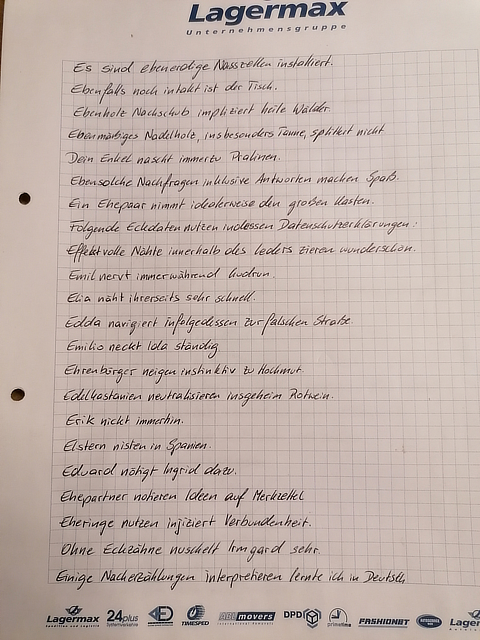 Lagermax
Unternehmensgruppe
Es sind ebenerdige Nasszellen installiert.
Ebenfalls noch intakt ist der Tisch.
Ebenholz Nachschub impliziert heile Wälder.
Ebenmäßiges Nadelholz, insbesonders Tanne, splittert nicht
Dein Enkel nascht immerzu Pralinen.
Ebensolche Nachfragen inklusive Antworten machen Spaß.
Ein Ehepaar nimmt idealerweise den großen Kasten.
Folgende Eckdaten nutzen indessen Datenschutzerklärungen:
Effektvolle Nähte innerhalb des Leders zieren wunderschön.
Emil nervt immerwährend Gudrun.
Elia näht ihrerseits sehr schnell.
Edda navigiert infolgedessen zur falschen Straße.
Emilio neckt Ida ständig
Ehrenbürger neigen instinktiv zu Hochmut.
Edelkastanien neutralisieren insgeheim Rotwein.
Erik nickt immerhin.
Elstern nisten in Spanien.
Eduard nötigt Ingrid dazu.
Ehepartner notieren Ideen auf Merkzettel
Eheringe nutzen injiziert Verbundenheit.
Ohne Eckzähne nuschelt Irmgard sehr.
Einige Nacherzählungen interpretieren lernte ich in Deutsch,
Lagermax 24plus TIMESPED movers DPD primetime FASHIONNET